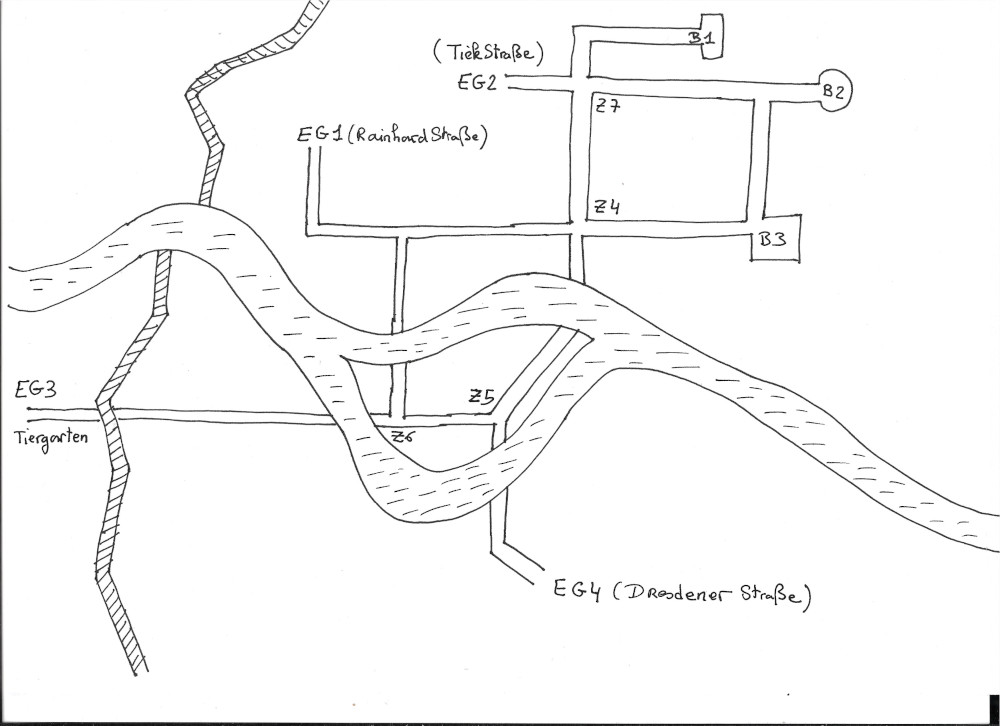 B1
(TiekStraße)
EG2
B2
Z7
EG1 (RainhardStraße)
Z4
B3
EG3
Z5
Tiergarten
Z6
EG4 (Dresdener Straße)